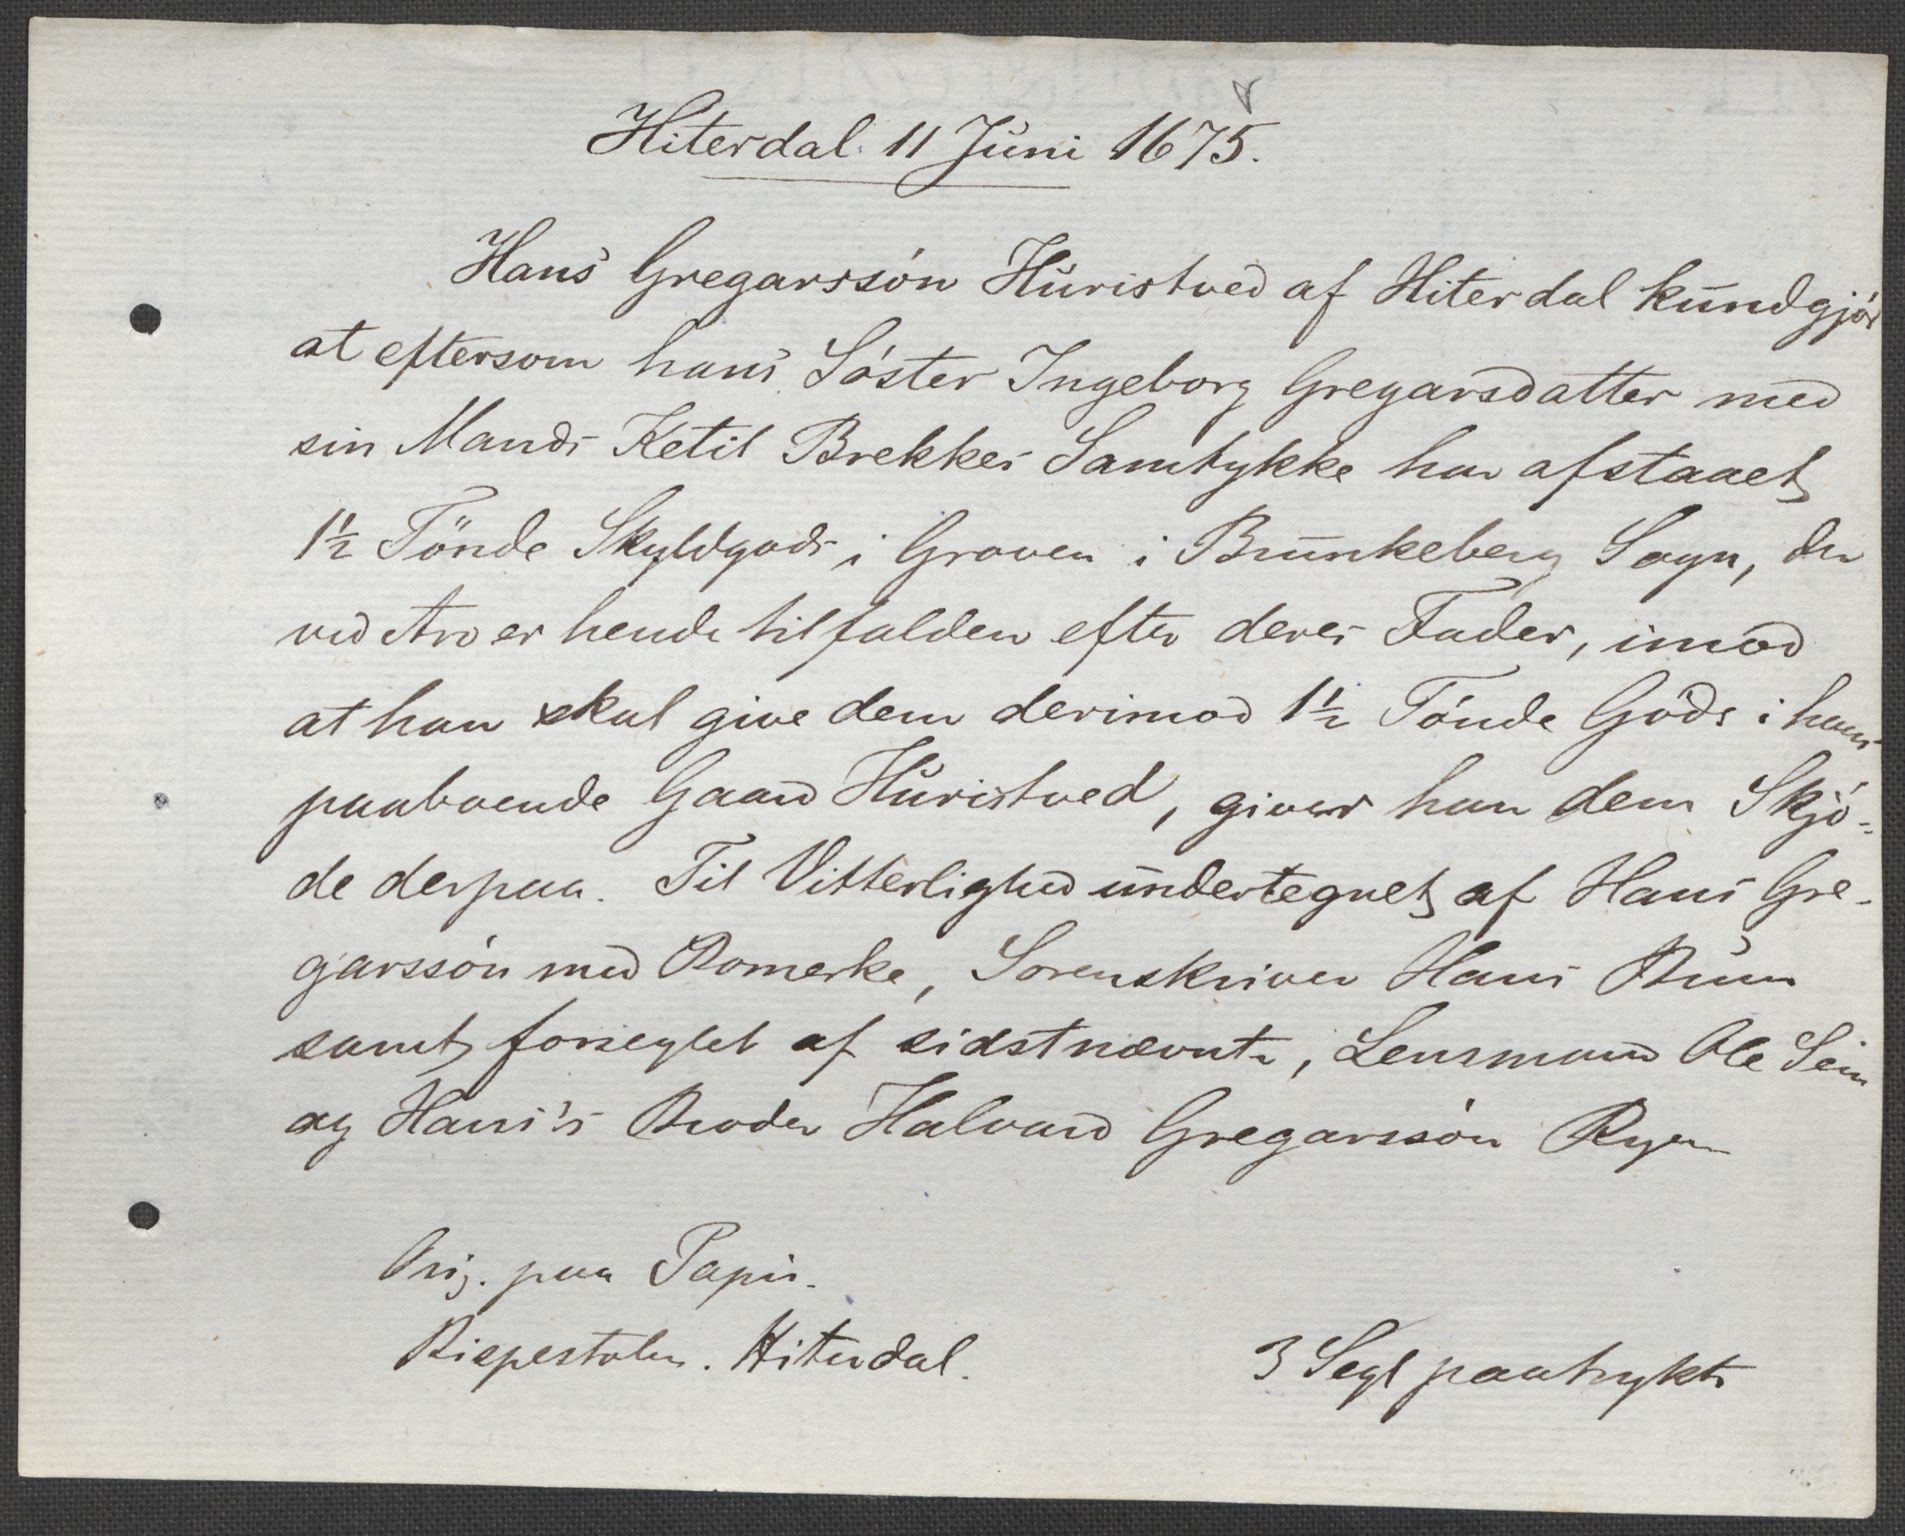 Hiterdal 11 Juni 1675.
Hans Gregarssón Huristved af Hiterdal kundgjór
at eftersom hans Sóster Ingeborg Gregarsdatter med
sin Mands Ketil Brekkes Samtykke har afstaaet
1½ Tönde Skyldgods i Groven i Brunkeberg Sogn, der
ved Arv er hende tilfalden efter deres Fader, imod
at han skal give dem derimod 1½ Tónde Gods i hans
paaboende Gaard Huristved, giver han dem Skjó-
de derpaa. Til Vitterlighed undertegnet af Hans Gre-
garssón med Bomerke, Sorenskriver Hans Bruun
samt forseglet af sidstnævnte, Lensmand Ole Sem
og Hans's Broder Halvard Gregarssón Ryen
Orig. paa Papir.
Riepestolen. Hiterdal.
3 Segl paatrykte